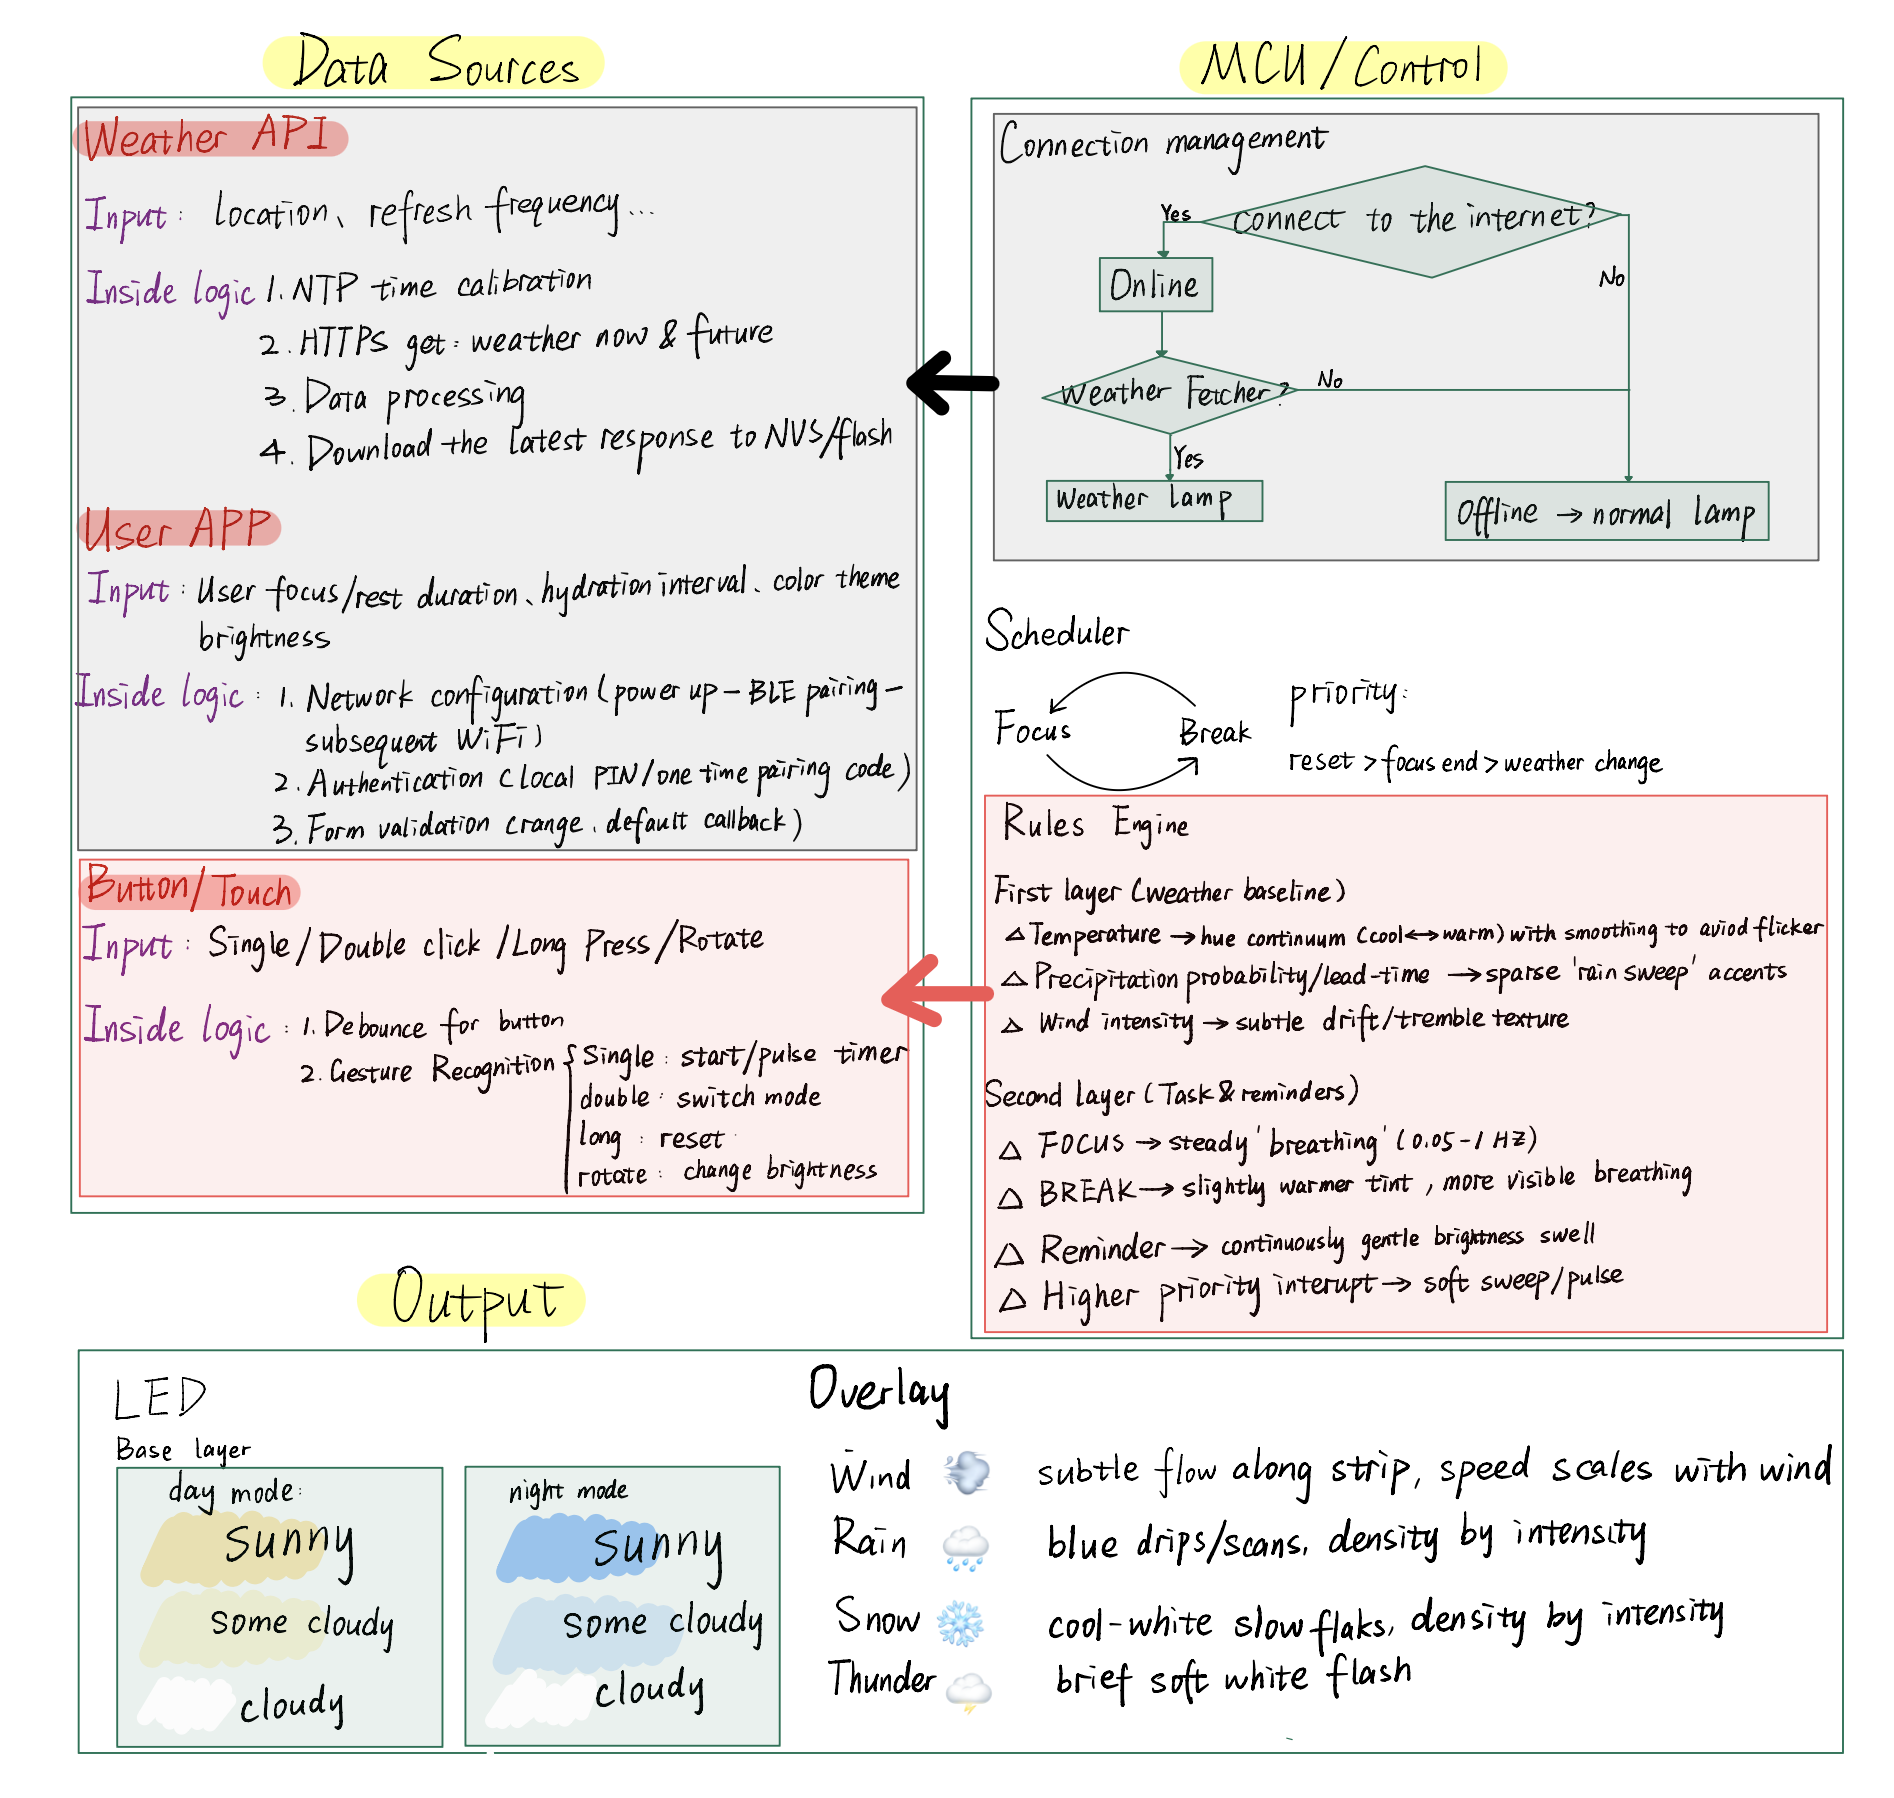 Data Sources
Weather API
Input: location、refresh frequency...
Inside logic 1. NTP time calibration
2. HTTPS get: weather now & future
3. Data processing
4. Download the latest response to NVS/flash
User APP
Input: User focus/rest duration、hydration interval、color theme
brightness
Inside logic: 1. Network configuration (power up – BLE pairing –
subsequent WiFi)
2. Authentication (local PIN/one time pairing code)
3. Form validation (range、default callback)
Button/Touch
Input: Single/Double click/Long Press/Rotate
Inside logic: 1. Debounce for button
2. Gesture Recognition { Single: start/pulse timer
double: switch mode
long: reset
rotate: change brightness
MCU/Control
Connection management
Connect to the internet?
Yes
No
Online
Weather Fetcher?
No
Yes
Weather lamp
Offline → normal lamp
Scheduler
Focus
Break
priority:
reset > focus end > weather change
Rules Engine
First layer (weather baseline)
△ Temperature → hue continuum (cool ↔ warm) with smoothing to aviod flicker
△ Precipitation probability/lead-time → sparse 'rain sweep' accents
△ Wind intensity → subtle drift/tremble texture
Second layer (Task & reminders)
△ FOCUS → steady 'breathing' (0.05-1 HZ)
△ BREAK → slightly warmer tint, more visible breathing
△ Reminder → continuously gentle brightness swell
△ Higher priority interupt → soft sweep/pulse
Output
LED
Base layer
day mode:
sunny
some cloudy
cloudy
night mode
sunny
some cloudy
cloudy
Overlay
Wind subtle flow along strip, speed scales with wind
Rain blue drips/scans, density by intensity
Snow cool-white slow flaks, density by intensity
Thunder brief soft white flash